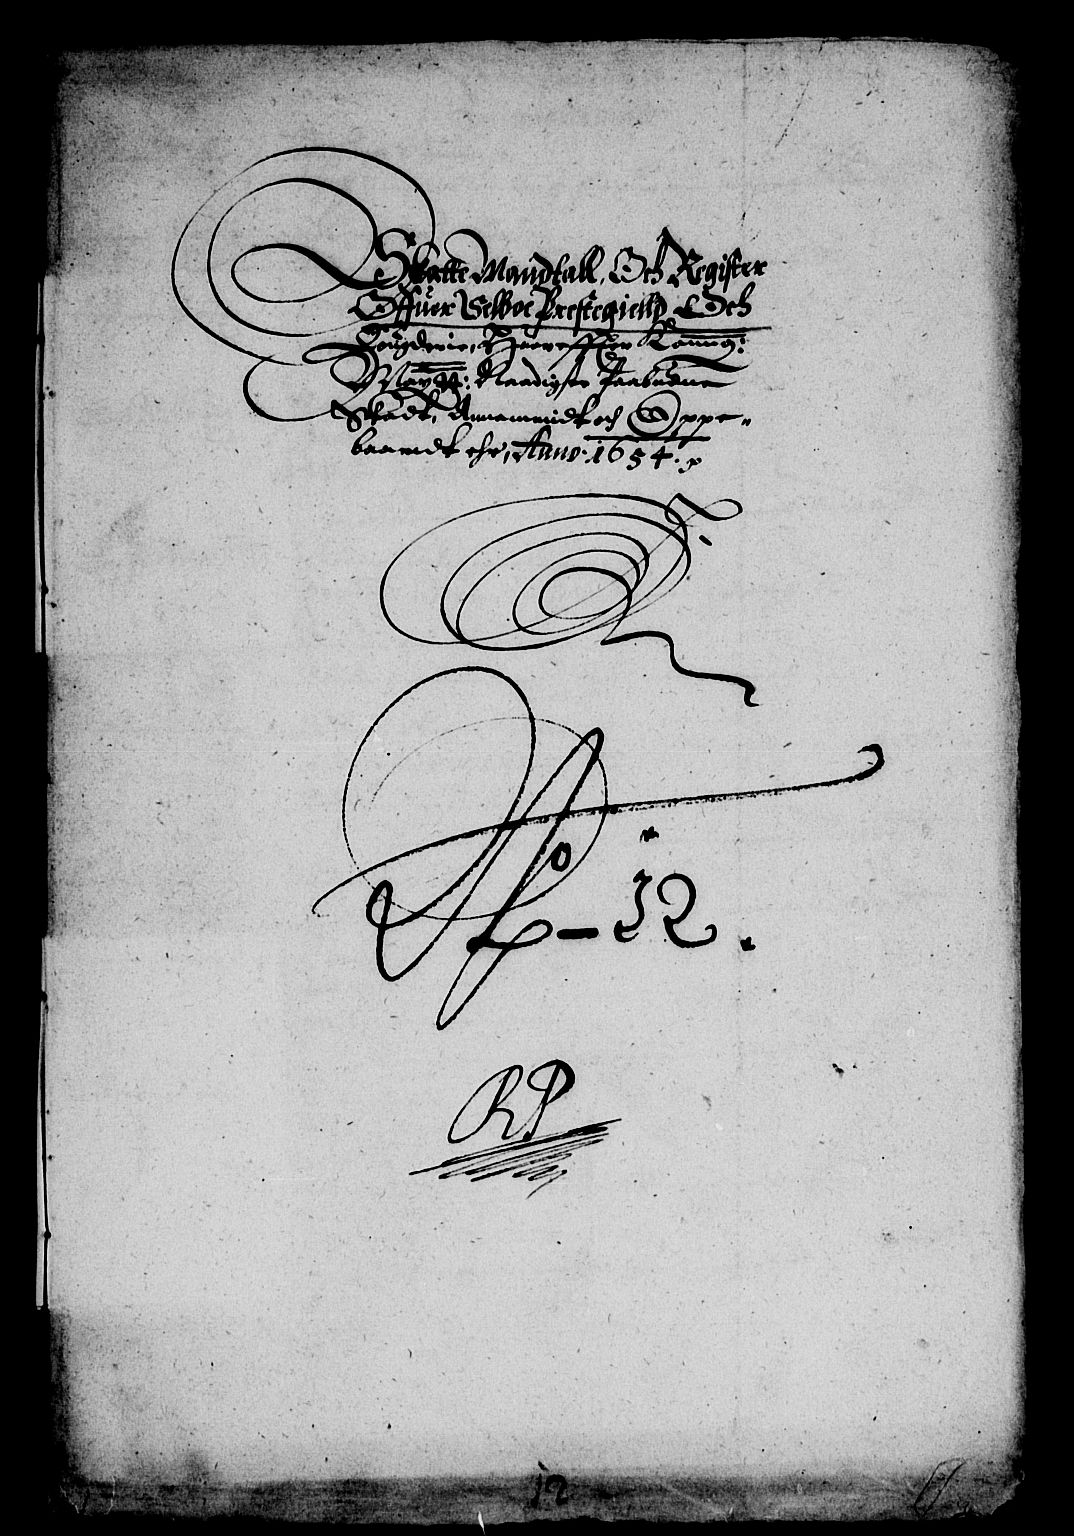 Skatte Mandtall, Och Register
Offuer Selboe Prestegield Och
Fougderie, Huoreffter Konng:
May: tt: Naadigste Paabudne
Skadt, Annammidt och Oppe-
baarridt ehr, Anno. 1654.
No - 12.
RP
12